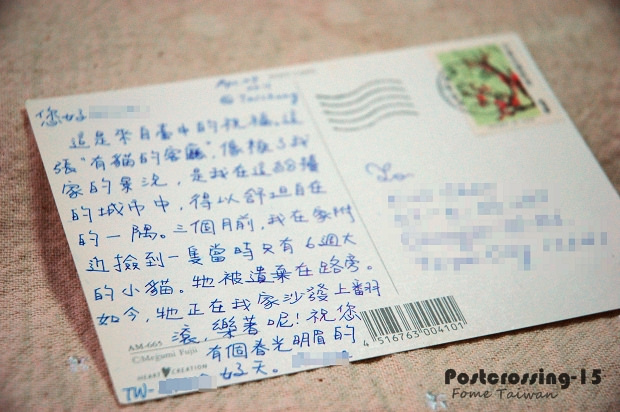 Apr.
@ Taichung
您好
這是來自臺中的祝福。這
張"有貓的客廳",像極了我
家的景況，是我在這的擁擠
的城市中，得以舒坦自在
的一隅。三個月前，我在家附
近撿到一隻當時只有6週大
的小貓。牠被遺棄在路旁。
如今，牠正在我家沙發上翻
滾，樂著呢！祝您
有個春光明眉的
好天。
TW-
To
AM-665
©Megumi Fuji
HEART CREATION
4 516763 004101
Postcrossing-15
Fome Taiwan